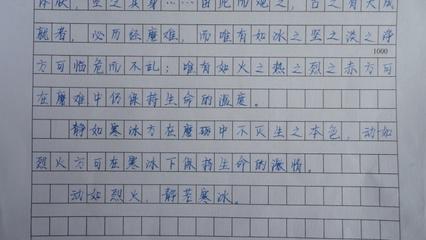 体肤,空乏其身……由此而观之,古之有大成
就者,必历经磨难,而唯有如冰之坚之洪之净
1000
方可临危而不乱;唯有如火之热之烈之赤方可
在磨难中仍保持生命的温度。
静如寒冰方在磨砺中不灭生之本色,动如
烈火方可在寒冰下保持生命的激情。
动如烈火,静若寒冰。